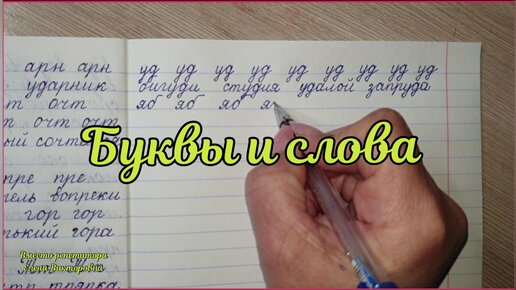 арн арн
ударник
очт
очт очт
пре пре
вопреки
гор гор
гора
тряпка
уд уд уд уд уд уд уд уд уд
бигуди студия удалой запруда
яб яб яб я
Буквы и слова
Вместо репетитора
Елена Викторовна